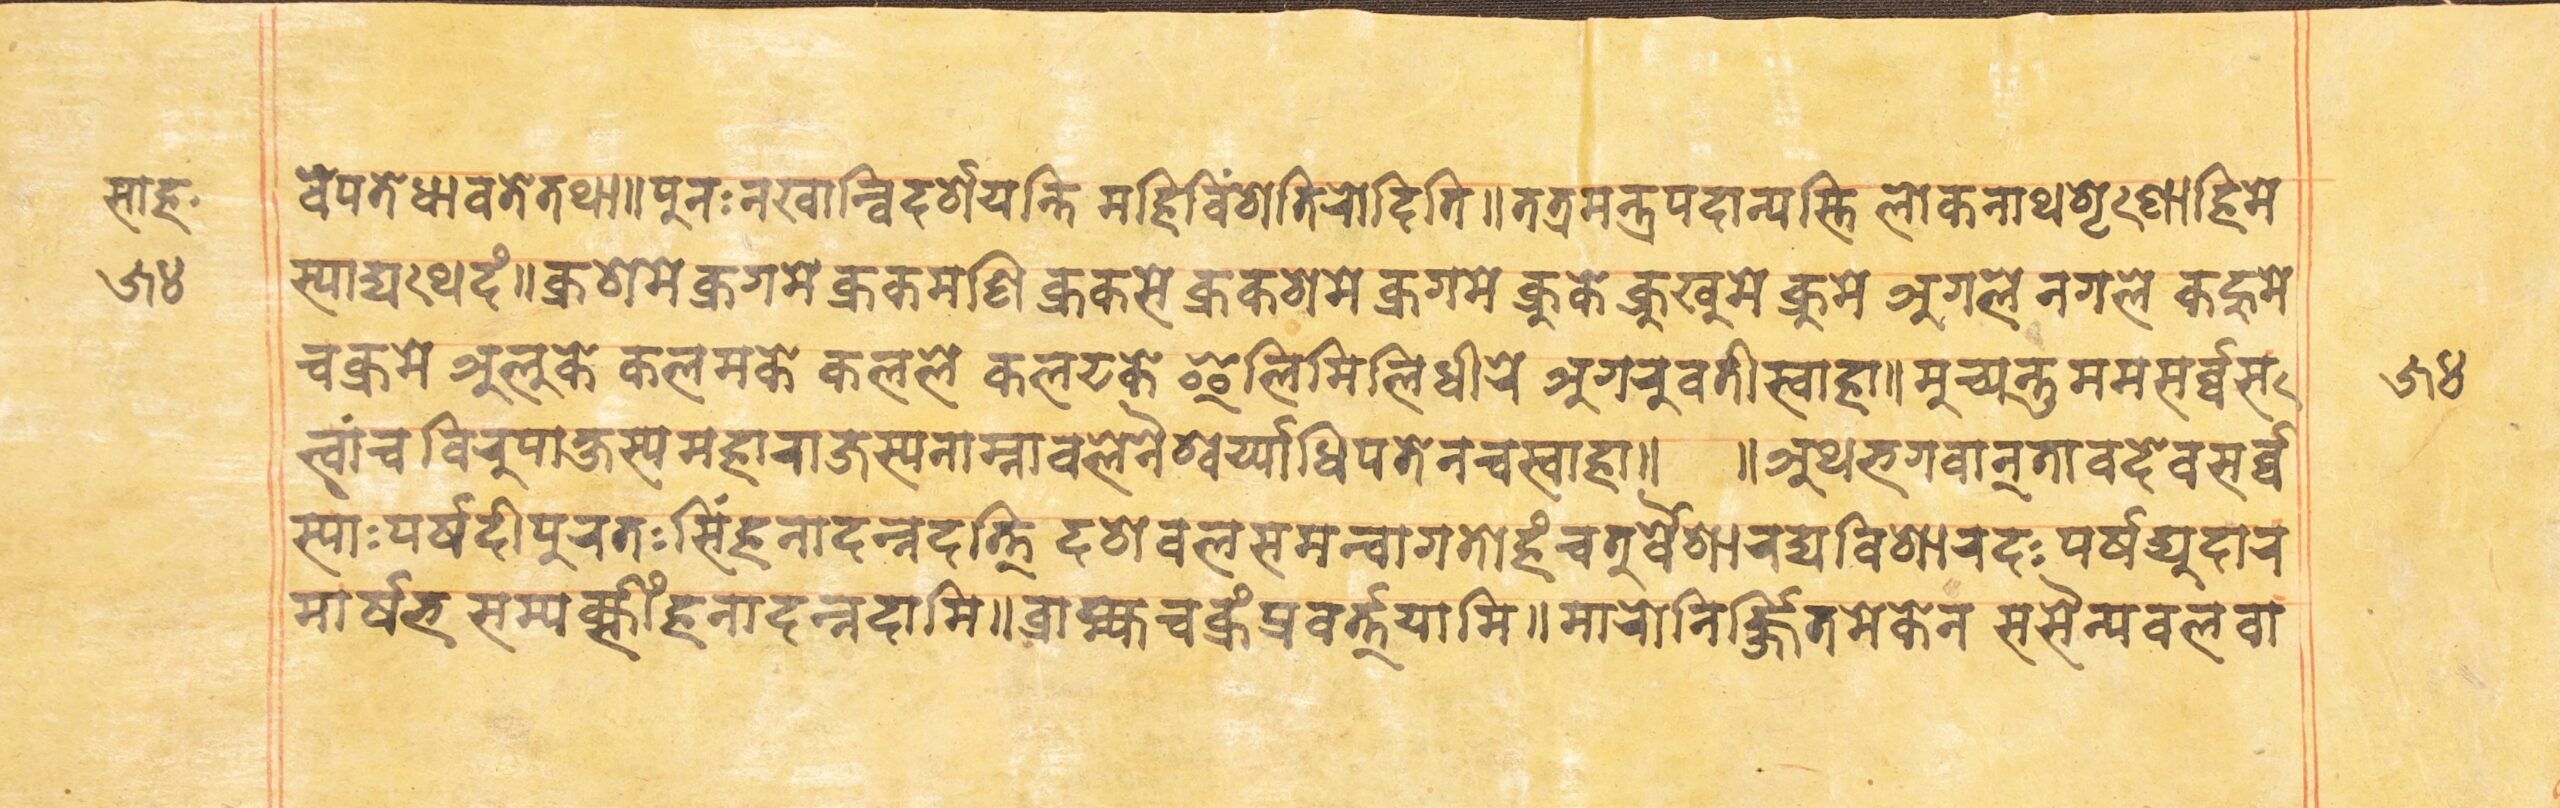 साह॰
७४
वेपते धावते तथा॥ पुनः नखान्विदर्शयन्ति महिविंशतिरोदिति॥ तत्र मन्त्रपदान्यस्ति लोकनाथ शृणाहि मे
स्याद्यथदं॥ क्रशमे क्रगमे क्रकमशि क्रकसे क्रकशमे क्रगमे क्रुके क्रुखुमे क्रुमे अगले नगले कह्नमे
चक्रमे अलुके कलमके कलले कलटके इलिमिलि धीरे अगरुवती स्वाहा॥ मुच्यन्तु मम सर्व्वस
७४
त्वांच विरुपाक्षस्य महाराजस्य नाम्ना वलेनैश्वर्य्याधिपतेन च स्वाहा॥ ॥ अथ भगवान् तावदेव सर्व्व
स्याः पर्षदी पुरतः सिंहनादन्नदत्ति दशवलसमन्वागतोहं चतुर्वैशारद्यविशारदः पर्षद्युदार
मार्षभ सम्यक्सींहनादन्नदामि॥ व्राह्मचक्रं प्रवर्त्तयामि॥ मारो निर्ज्जितमेकेन ससैन्यवलवा